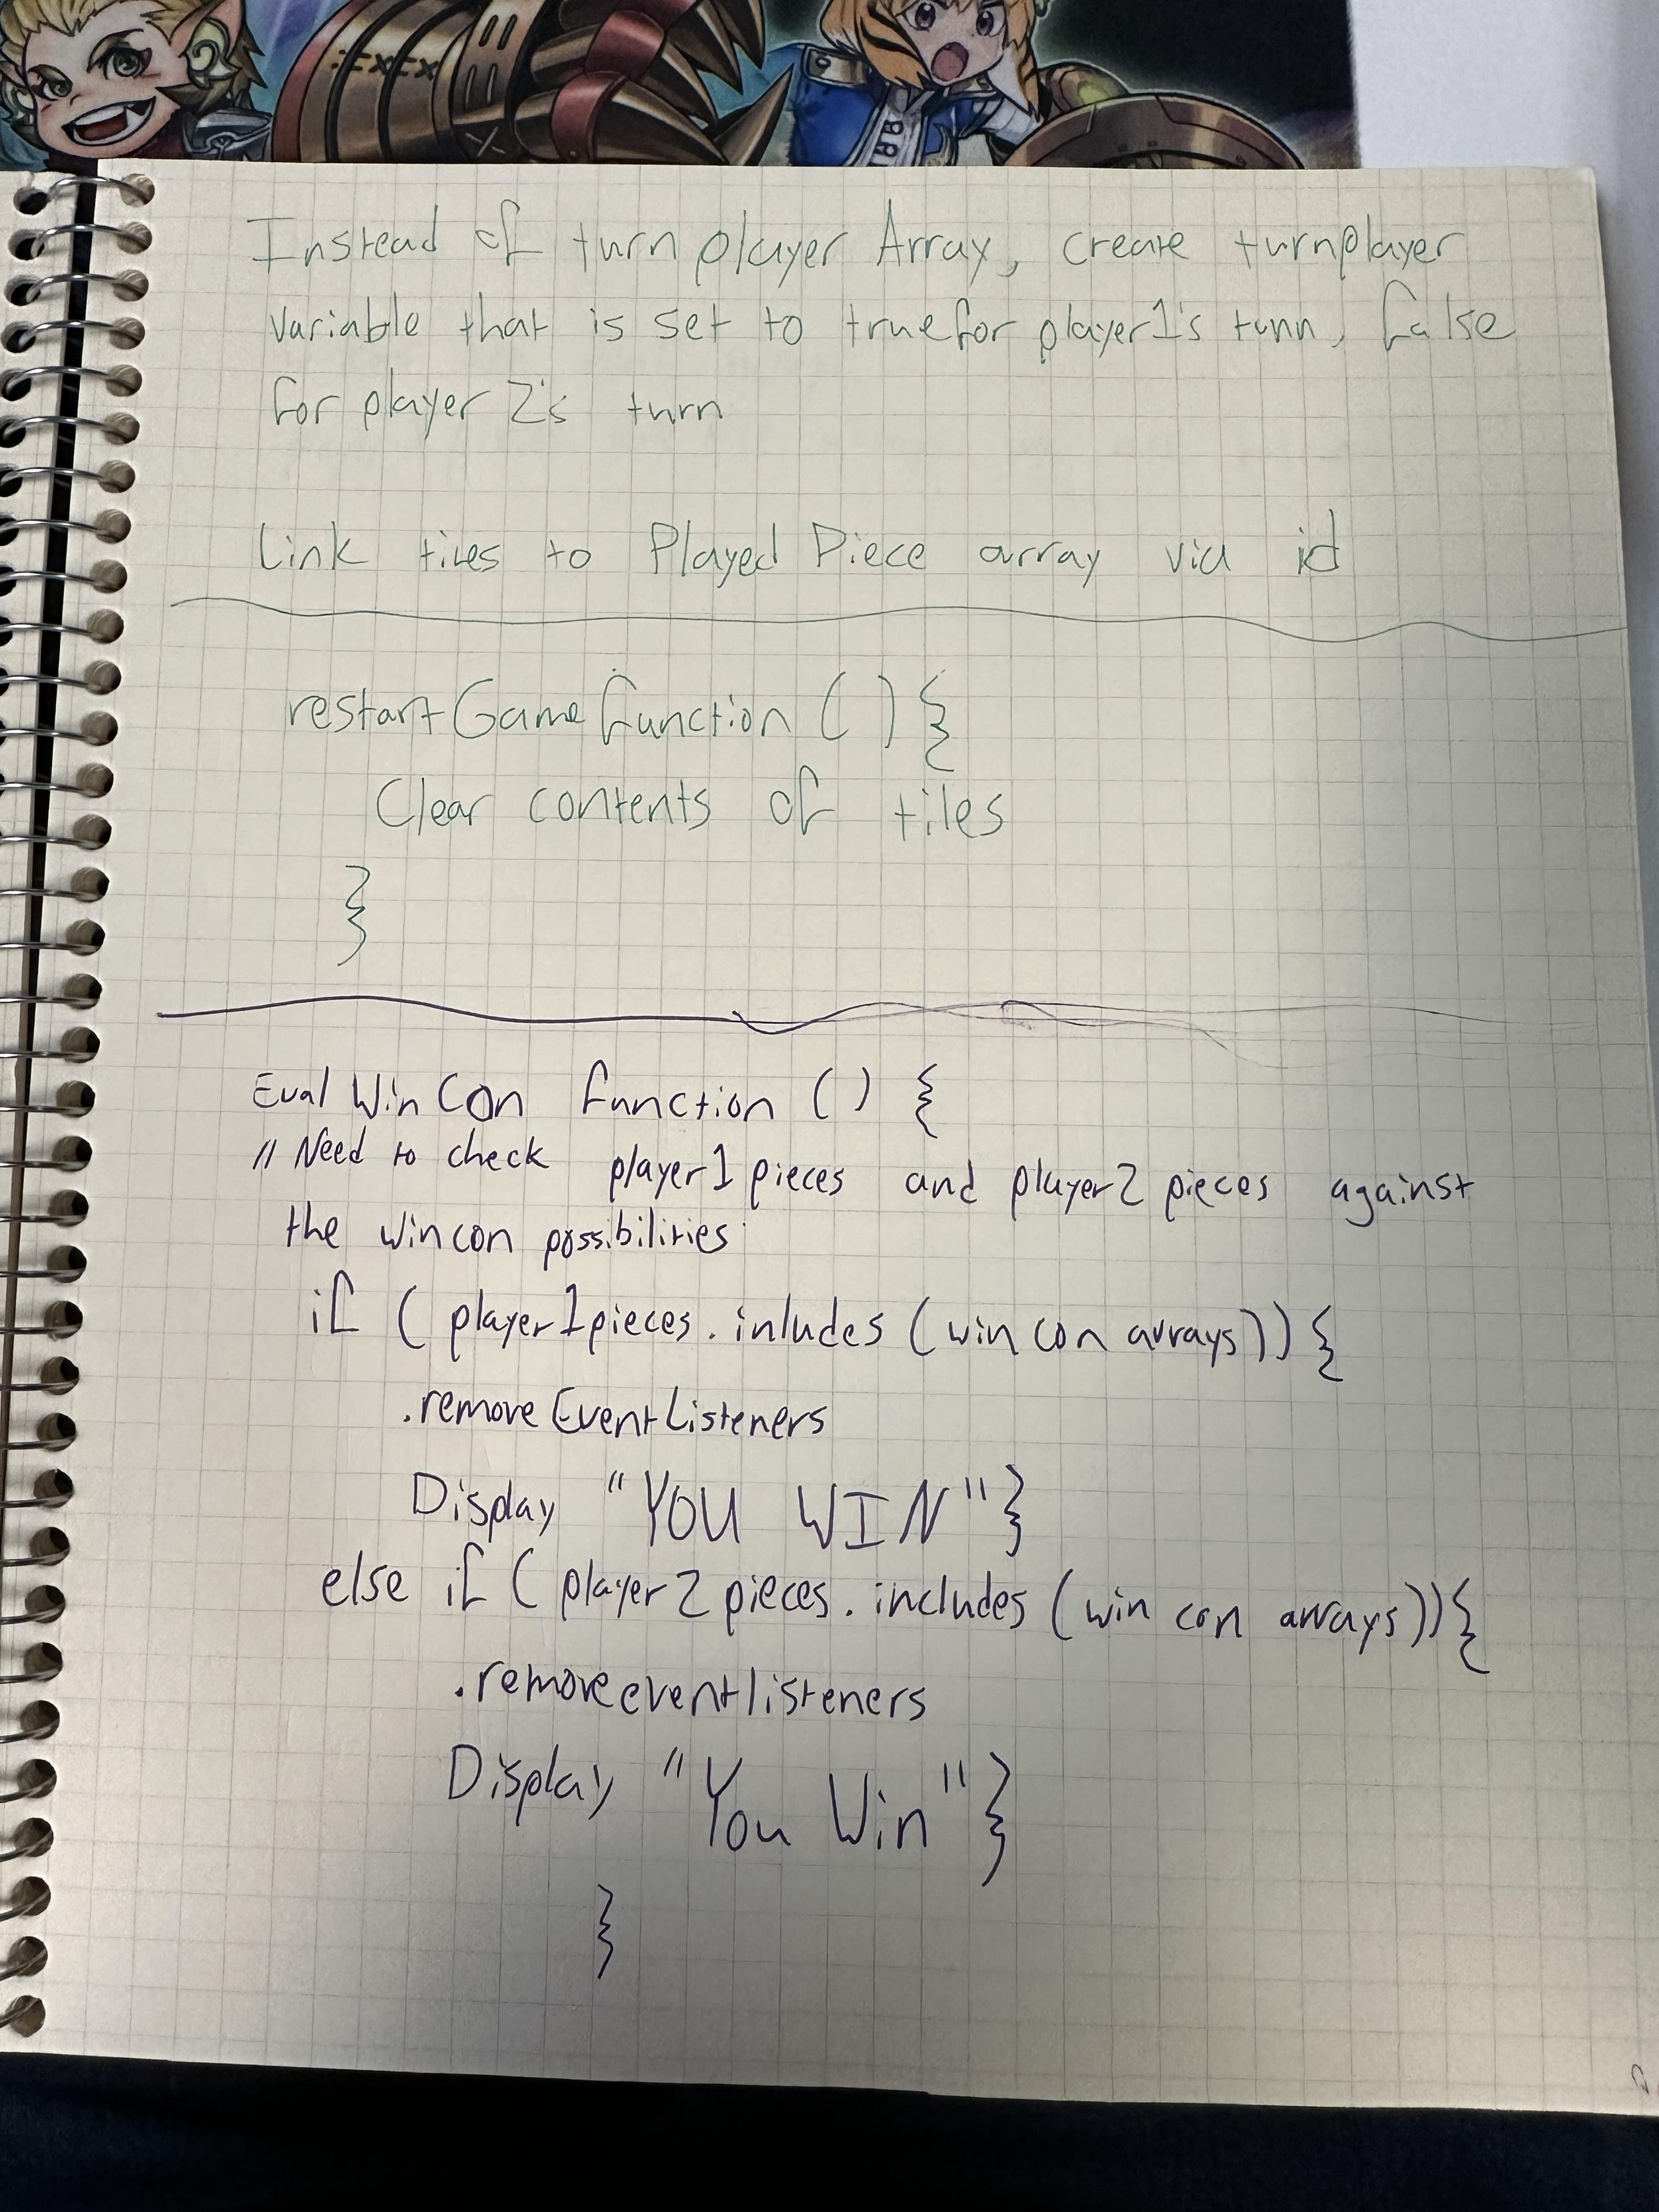 Instead of turn player Array, create turnplayer
variable that is set to true for player1's turn, false
for player 2's turn
Link tiles to Played Piece array via id
restartGame function ( ) {
Clear contents of tiles
}
Eval Win Con function ( ) {
// Need to check player1pieces and player2pieces against
the wincon possibilities
if ( player1pieces.inludes (win con arrays)) {
.removeEventListeners
Display "YOU WIN" }
else if ( player2pieces.includes (win con arrays)) {
.removeeventlisteners
Display "You Win" }
}